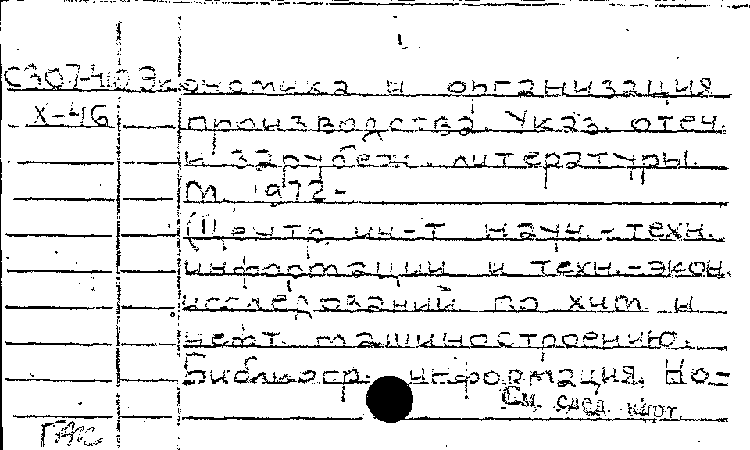 1
С307-40 Экономика и организация
Х-46 производства. Указ. отеч.
и зарубеж. литературы.
М. 1972-
(Центр. ин-т науч.-техн.
информации и техн.-экон.
исследований по хим. и
нефт. машиностроению.
Библиогр. информация. Но-
См. след. карт.